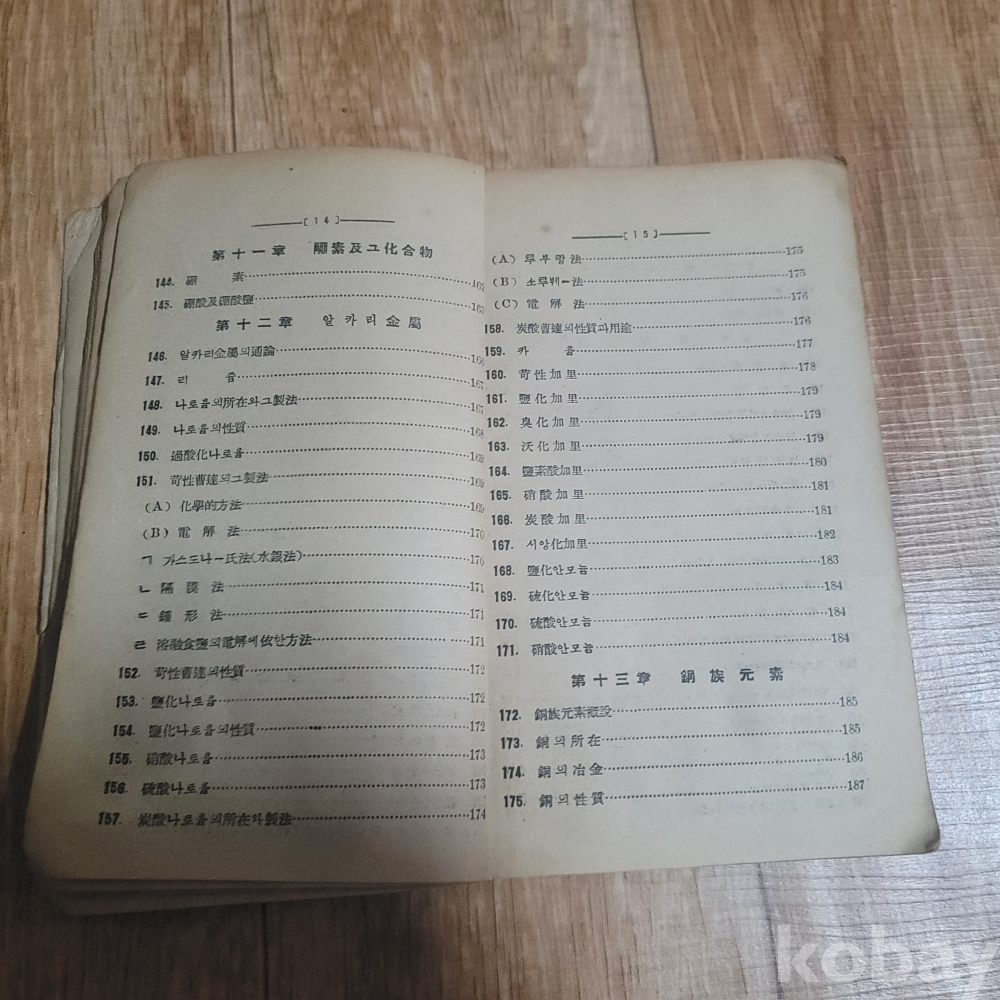 [14]
第十一章 硼素及그化合物
144. 硼 素 162
145. 硼酸及硼酸鹽 163
第十二章 알카리金屬
146. 알카리金屬의通論 166
147. 리 튬 167
148. 나토륨의所在와그製法 167
149. 나토륨의性質 168
150. 過酸化나토륨 169
151. 苛性曹達의그製法 169
(A) 化學的方法 169
(B) 電解法 170
ㄱ 가스드나ー氏法(水銀法) 170
ㄴ 隔膜法 171
ㄷ 鍾形法 171
ㄹ 溶融食鹽의電解에依한方法 171
152. 苛性曹達의性質 172
153. 鹽化나토륨 172
154. 鹽化나토륨의性質 172
155. 硝酸나토륨 173
156. 硫酸나토륨 173
157. 炭酸나토륨의所在와製法 174
[15]
(A) 루부랑法 175
(B) 소루뻬ー法 175
(C) 電解法 176
158. 炭酸曹達의性質과用途 176
159. 카 륨 177
160. 苛性加里 178
161. 鹽化加里 179
162. 臭化加里 179
163. 沃化加里 179
164. 鹽素酸加里 180
165. 硝酸加里 181
166. 炭酸加里 181
167. 시앙化加里 182
168. 鹽化안모늄 183
169. 硫化안모늄 184
170. 硫酸안모늄 184
171. 硝酸안모늄 184
第十三章 銅族元素
172. 銅族元素槪說 185
173. 銅의所在 185
174. 銅의冶金 186
175. 銅의性質 187
kobay